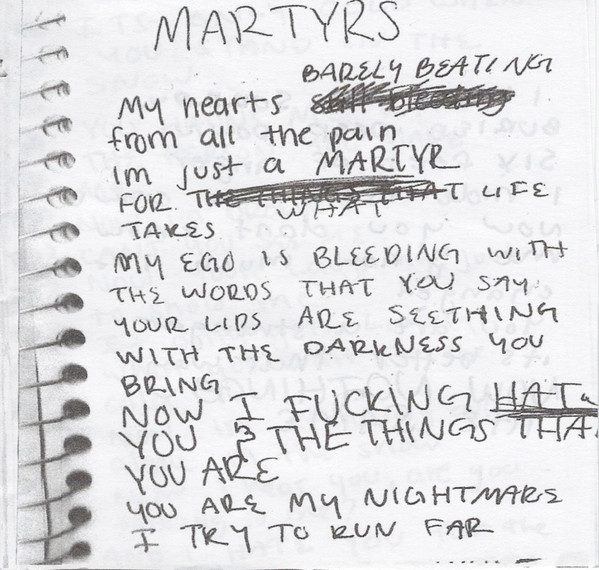 MARTYRS
BARELY BEATING
My hearts still bleeding
from all the pain
Im just a MARTYR
FOR THE THINGS THAT LIFE
WHAT
TAKES
MY EGO IS BLEEDING WITH
THE WORDS THAT YOU SAY.
YOUR LIPS ARE SEETHING
WITH THE DARKNESS YOU
BRING
NOW I FUCKING HATE
YOU & THE THINGS THA
YOU ARE
YOU ARE MY NIGHTMARE
I TRY TO RUN FAR